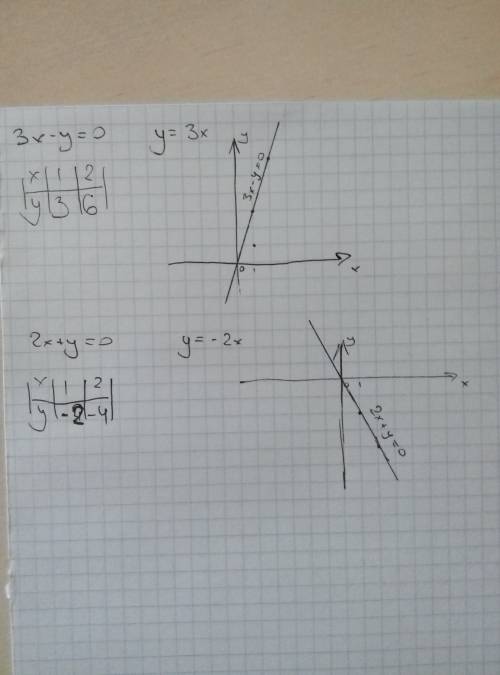 3x-y=0 y=3x
y
x 1 2
y 3 6
3x-y=0
0
x
2x+y=0 y=-2x
y
x 1 2
y -2 -4
0
x
2x+y=0